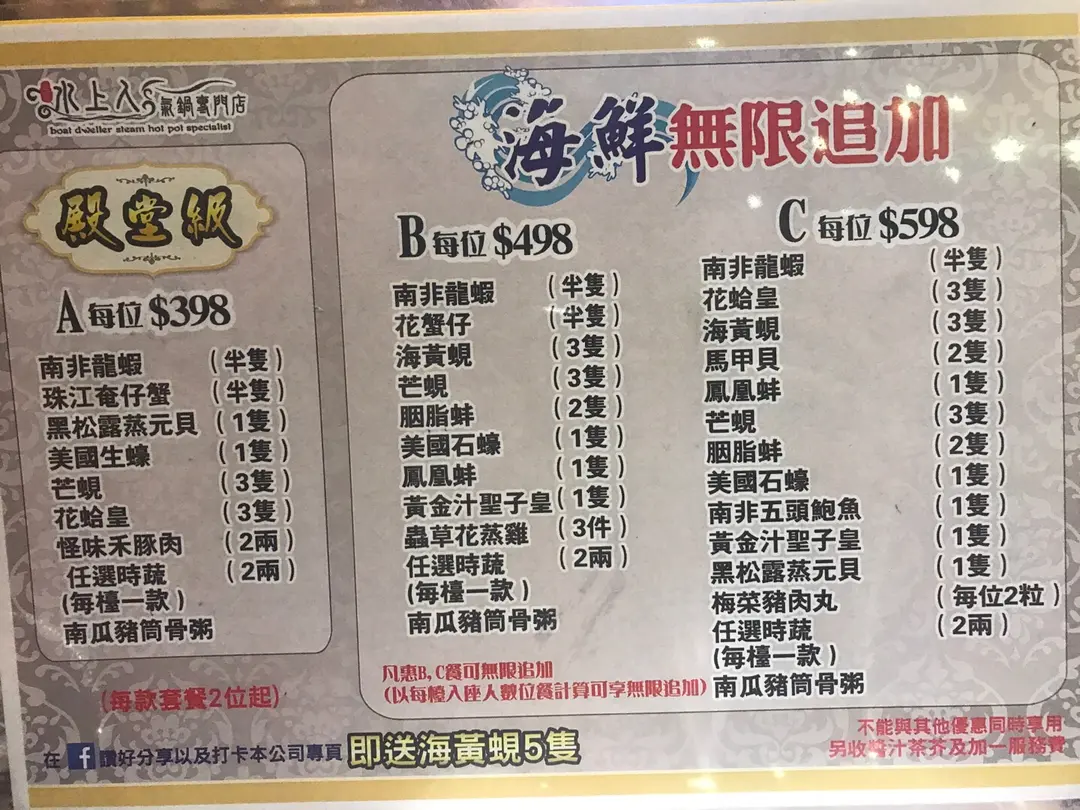 水上人
氣鍋專門店
boat dweller steam hot pot specialist
殿堂級
A 每位 $398
南非龍蝦 (半隻)
珠江奄仔蟹 (半隻)
黑松露蒸元貝 (1隻)
美國生蠔 (1隻)
芒蜆 (3隻)
花蛤皇 (3隻)
怪味禾豚肉 (2兩)
任選時蔬 (2兩)
(每檯一款)
南瓜豬筒骨粥
(每款套餐2位起)
海鮮無限追加
B 每位 $498
南非龍蝦 (半隻)
花蟹仔 (半隻)
海黃蜆 (3隻)
芒蜆 (3隻)
胭脂蚌 (2隻)
美國石蠔 (1隻)
鳳凰蚌 (1隻)
黃金汁聖子皇 (1隻)
蟲草花蒸雞 (3件)
任選時蔬 (2兩)
(每檯一款)
南瓜豬筒骨粥
凡惠B,C餐可無限追加
(以每檯入座人數位餐計算可享無限追加)
C 每位 $598
南非龍蝦 (半隻)
花蛤皇 (3隻)
海黃蜆 (3隻)
馬甲貝 (2隻)
鳳凰蚌 (1隻)
芒蜆 (3隻)
胭脂蚌 (2隻)
美國石蠔 (1隻)
南非五頭鮑魚 (1隻)
黃金汁聖子皇 (1隻)
黑松露蒸元貝 (1隻)
梅菜豬肉丸 (每位2粒)
任選時蔬 (2兩)
(每檯一款)
南瓜豬筒骨粥
在 f 讚好分享以及打卡本公司專頁 即送海黃蜆5隻
不能與其他優惠同時享用
另收醬汁茶芥及加一服務費